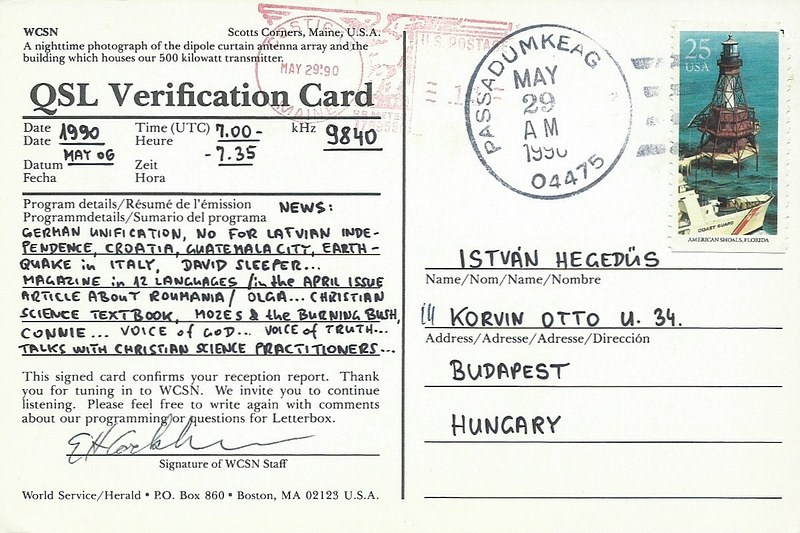 WCSN Scotts Corners, Maine, U.S.A.
A nighttime photograph of the dipole curtain antenna array and the
building which houses our 500 kilowatt transmitter.
QSL Verification Card
Date 1990 Time (UTC) 7.00- kHz 9840
Date MAY 06 Heure -7.35
Datum Zeit
Fecha Hora
Program details/Résumé de l'émission NEWS:
Programmdetails/Sumario del programa
GERMAN UNIFICATION, NO FOR LATVIAN INDE-
PENDENCE, CROATIA, GUATEMALA CITY, EARTH-
QUAKE in ITALY, DAVID SLEEPER...
MAGAZINE in 12 LANGUAGES /in the APRIL ISSUE
ARTICLE ABOUT ROUMANIA/ OLGA... CHRISTIAN
SCIENCE TEXTBOOK, MOZES & the BURNING BUSH,
CONNIE... VOICE of GOD... VOICE of TRUTH...
TALKS WITH CHRISTIAN SCIENCE PRACTITIONERS...
This signed card confirms your reception report. Thank
you for tuning in to WCSN. We invite you to continue
listening. Please feel free to write again with comments
about our programming or questions for Letterbox.
Signature of WCSN Staff
World Service/Herald • P.O. Box 860 • Boston, MA 02123 U.S.A.
MAY 29'90
MAINE
U.S. POSTAG
PASSADUMKEAG
MAY
29
AM
1990
04475
25
USA
COAST GUARD
AMERICAN SHOALS, FLORIDA
ISTVÁN HEGEDÜS
Name/Nom/Name/Nombre
KORVIN OTTO U. 34.
Address/Adresse/Adresse/Dirección
BUDAPEST
HUNGARY